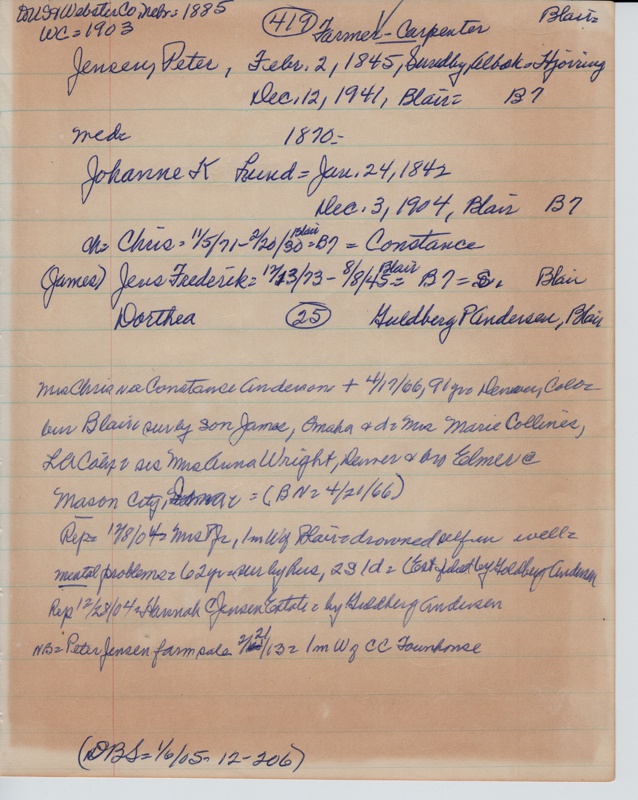 DUSA Webster Co, Nebr = 1885
WC = 1903
419 Farmer - Carpenter Blair =
Jensen, Peter, Febr. 2, 1845, Sundby, Albæk = Hjörring
Dec. 12, 1941, Blair = B7
med = 1870 =
Johanne K Lund = Jan. 24, 1842
Dec. 3, 1904, Blair B7
ch = Chris = 11/5/71 - 2/20/30 = Blair = B7 = Constance
(James) Jens Frederik = 12/13/73 - 8/8/45 = Blair B7 = S. Blair
Dorthea 25 Guldberg P Andersen, Blair
Mrs Chris nee Constance Anderson + 4/17/66, 91 yrs Denver, Colo =
bur Blair = sur by son James, Omaha & d = Mrs Marie Collines,
LA Calif = sis Mrs Anna Wright, Denver & bro Elmer @
Mason City, = (BN = 4/21/66)
Rep = 12/8/04 = Mrs PJ, 1m W of Blair = drowned self in well =
mental problems = 62 yrs = sur by hus, 2S 1d = (Est filed by Goldberg Andersen
Rep 12/23/04 = Hannah C Jensen Estate = by Guldberg Andersen
NB = Peter Jensen farm sale 2/21/13 = 1m W of CC Townhouse
(DBS = 1/6/05 = 12-206)